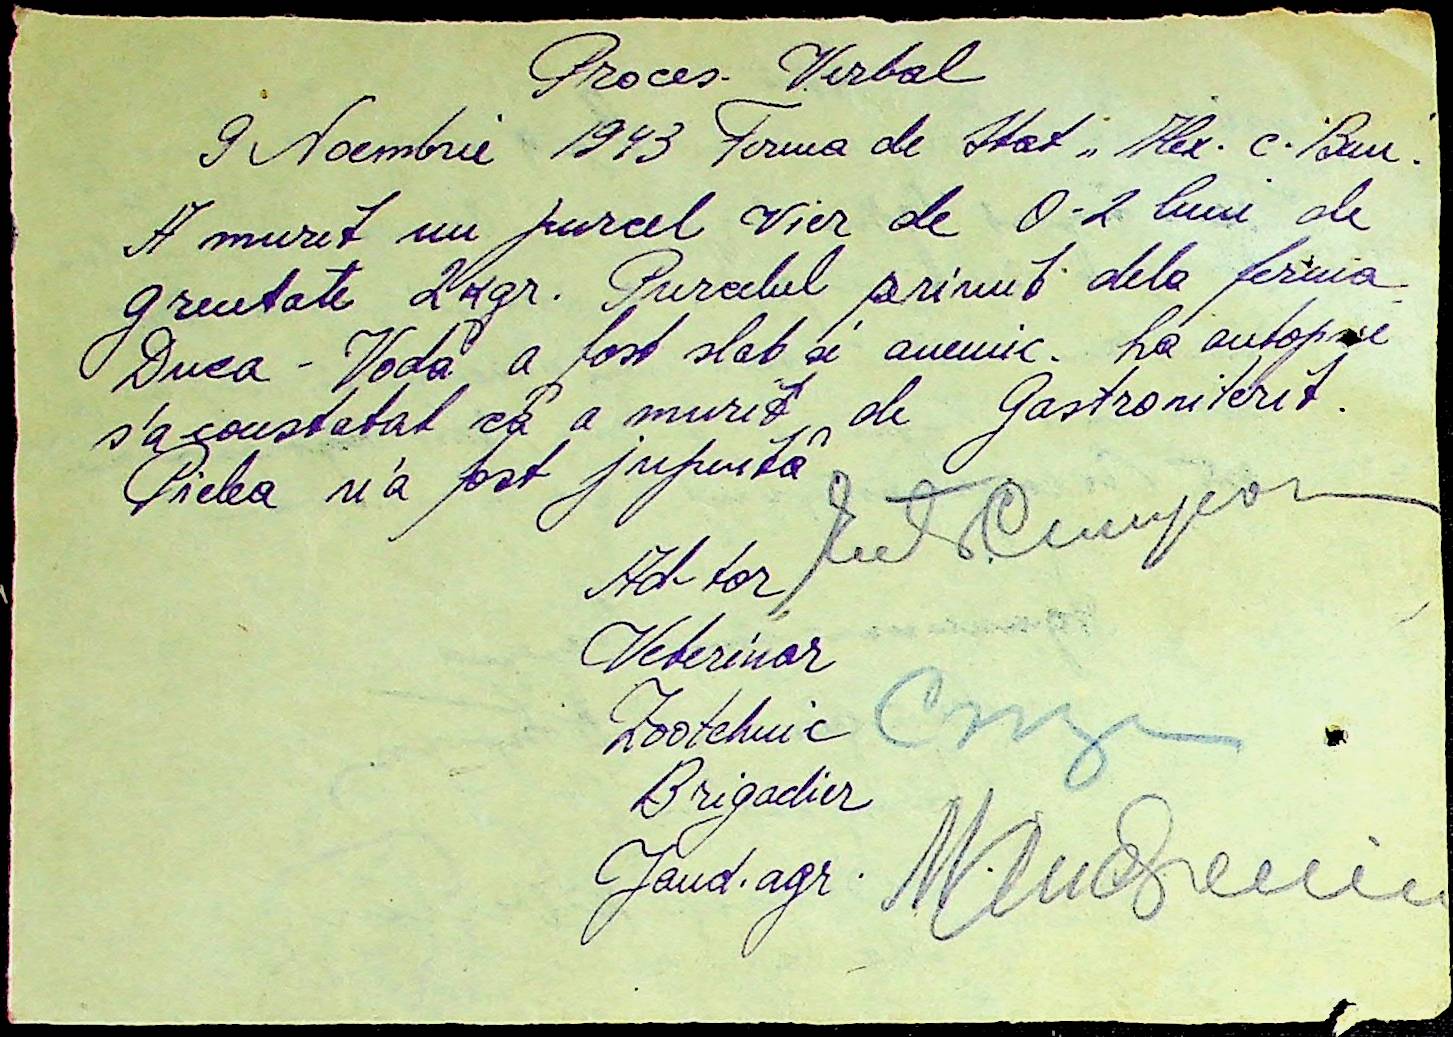 Proces-Verbal
9 Noembrie 1943 Ferma de Stat „Alex. c. Bun".
A murit un purcel vier de 0-2 luni de
greutate 2 kgr. Purcelul primit dela ferma
Duca-Vodă a fost slab și anemic. La autopsie
s'a constatat că a murit de Gastroniterit.
Pielea n'a fost jupuită
Ad-tor
Veterinar
Zootehnic
Brigadier
Jand. agr.